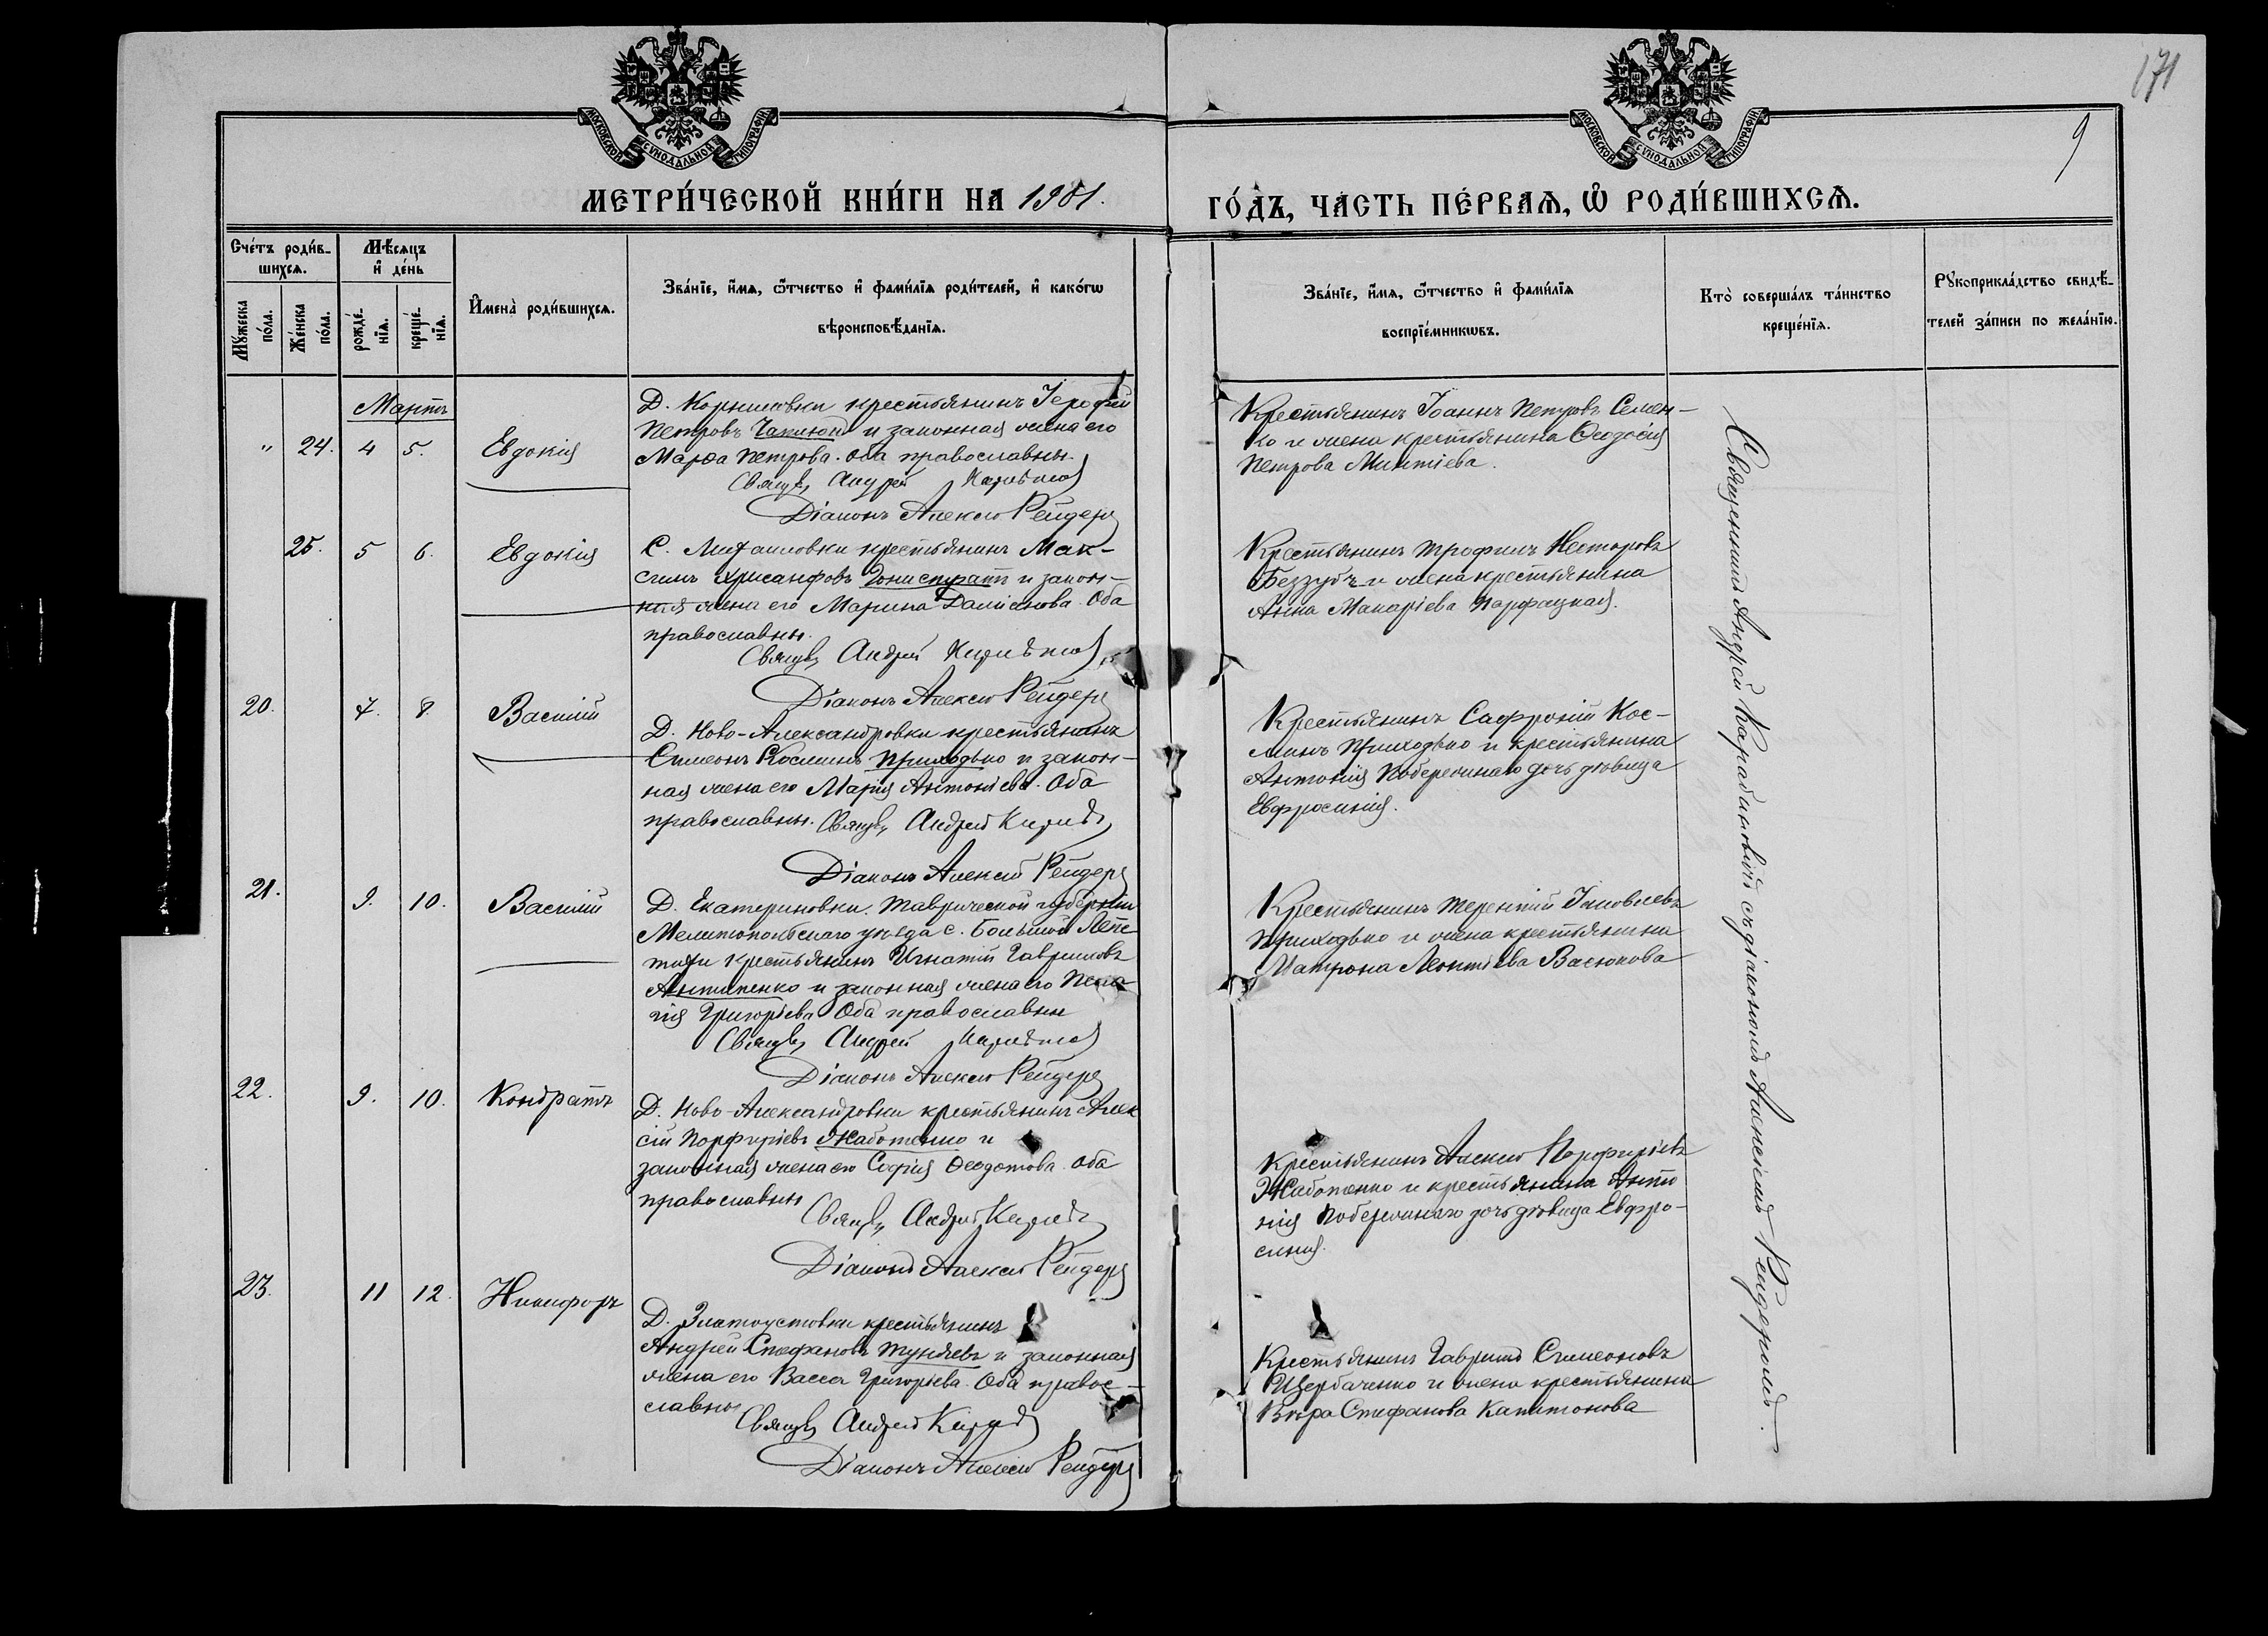 171
9
МОСКОВСКОЙ СѴНОДАЛЬНОЙ ТИПОГРАФІИ
МОСКОВСКОЙ СѴНОДАЛЬНОЙ ТИПОГРАФІИ
МЕТРИ́ЧЕСКОЙ КНИ́ГИ НА 1901.
ГО́ДЪ, ЧА́СТЬ ПЕ́РВАѦ, Ѽ РОДИ́ВШИХСѦ.
Сче́тъ роди́в-
шихсѧ.
Мѣ́сѧцъ
и҆ де́нь
Мꙋ́жеска
по́ла.
Же́нска
по́ла.
рожде́-
нїѧ.
креще́-
нїѧ.
И҆мена̀ роди́вшихсѧ.
Зва́нїе, и҆́мѧ, ѻ҆́тчество и҆ фами́лїѧ роди́телей, и҆ како́гѡ
вѣроисповѣ́данїѧ.
Зва́нїе, и҆́мѧ, ѻ҆́тчество и҆ фами́лїѧ
воспрїе́мникѡвъ.
Кто̀ соверша́лъ та́инство
креще́нїѧ.
Рꙋкоприкла́дство свидѣ́-
телей за́писи по жела́нїю.
Мартъ
" 24. 4 5. Евдокія
Д. Корниловки крестьянинъ Іерофей
Петровъ и законная жена его
Марѳа Петрова. Оба православны.
Свящ. Андрей
Діаконъ Алексій Рейдеръ
Крестьянинъ Іоаннъ Петровъ Семен-
ко и жена крестьянина Ѳеодосія
Петрова
25. 5 6. Евдокія
С. Михаиловки крестьянинъ Мак-
симъ Хрисанфовъ и закон-
ная жена его Марина Даміанова. Оба
православны.
Свящ. Андрей
Діаконъ Алексій Рейдеръ
Крестьянинъ Трофимъ Несторовъ
Беззубъ и жена крестьянина
Анна Макаріева
20. 7. 8. Василій
Д. Ново-Александровки крестьянинъ
Симеонъ Косминъ Приходько и закон-
ная жена его Марія Антоніева. Оба
православны. Свящ. Андрей
Діаконъ Алексій Рейдеръ
Крестьянинъ Сафроній Кос-
минъ Приходько и крестьянина
Антонія Побережнаго дочь дѣвица
Евфросинія.
21. 9. 10. Василій
Д. Екатериновки. Таврической губерніи
Мелитопольскаго уѣзда с. Большой Лепе-
тихи крестьянинъ Игнатій Гавриловъ
Антипенко и законная жена его Пела-
гія Григоріева Оба православны
Свящ. Андрей
Діаконъ Алексій Рейдеръ
Крестьянинъ Терентій Іаковлевъ
Приходько и жена крестьянина
Матрона Леонтіева Васюкова
22. 9. 10. Кондратъ
Д. Ново-Александровки крестьянинъ Алек
сій Порфиріевъ Жаботенко и
законная жена его Софія Ѳеодотова. Оба
православны
Свящ. Андрей
Діаконъ Алексій Рейдеръ
Крестьянинъ Алексій Порфиріевъ
Жаботенко и крестьянина Анто
нія Побережнаго дочь дѣвица Евфро-
синія.
23. 11 12. Никифоръ
Д. Златоустовки крестьянинъ
Андрей Стефановъ и законная
жена его Васса Григоріева. Оба право-
славны
Свящ. Андрей
Діаконъ Алексій Рейдеръ
Крестьянинъ Гавріилъ Симеоновъ
Щербаченко и жена крестьянина
Вѣра Стефанова Капитонова
Священникъ Андрей съ діакономъ Алексіемъ Рейдеромъ.